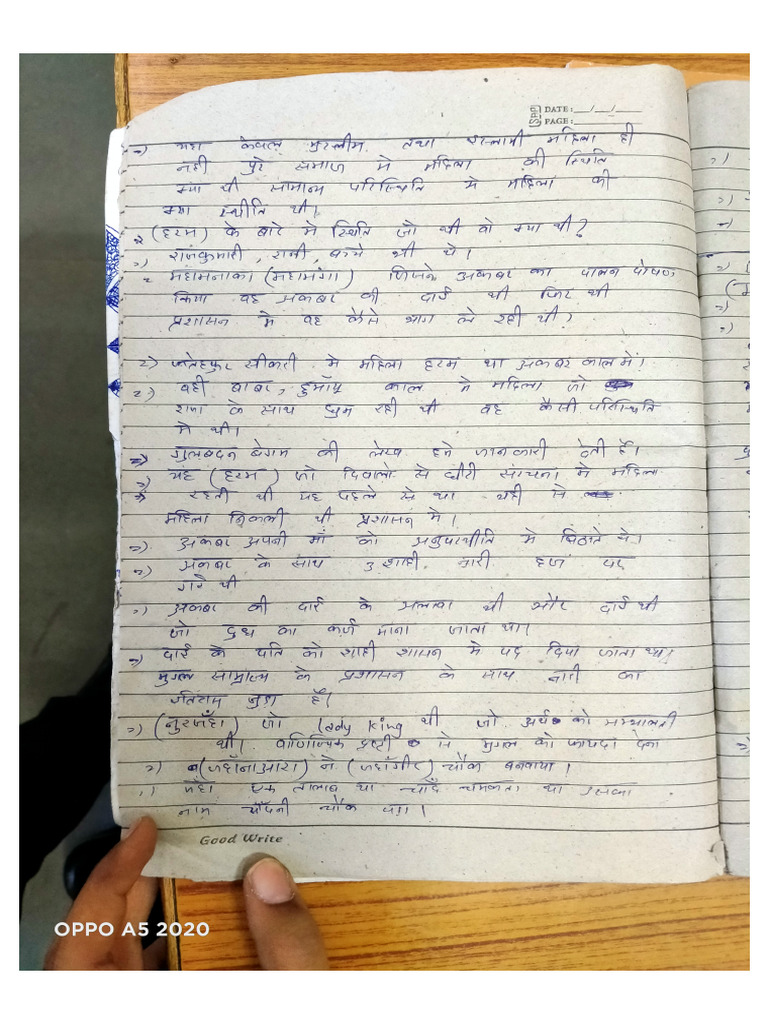 DATE: __/__/__
PAGE: ______
=) यहा केवल मुस्लीम तथा इस्लामी महिला ही
नही पुरे समाज मे महिला की स्थिति
क्या थी सामान्य परिस्थिति मे महिला की
क्या स्थीति थी।
(हरम) के बारे मे स्थिति जो थी वो क्या थी?
राजकुमारी, रानी, बच्चे भी थे।
महामनाका (महामंगा) जिसने अकबर का पालन पोषण
किया वह अकबर की दाई थी फिर भी
प्रशासन मे वह कैसे भाग ले रही थी?
2) फतेहपुर सीकरी मे महिला हरम था अकबर काल में।
2) वही बाबर, हुमाँयु काल मे महिला जो
राजा के साथ घुम रही थी वह कैसी परिस्थिति
मे थी।
=) गुलबदन बेगम की लेख हमे जानकारी देती है।
=) यह (हरम) जो दिवालो से घीरी संरचना मे महिला
रहती थी यह पहले से था यही से
महिला निकली थी प्रशासन मे।
=) अकबर अपनी माँ को अनुपस्थीति मे बिठाते थे।
=) अकबर के साथ 3 शाही नारी हज पर
गई थी
=) अकबर की दाई के अलावा भी और दाई थी
जो दुध का कर्ज माना जाता था।
=) दाई के पति को शाही शासन मे पद दिया जाता था।
मुगल साम्राज्य के प्रशासन के साथ नारी का
इतिहास जुडा है।
=) (नुरजँहा) जो Lady King थी जो अर्थ को सम्भालती
थी। वाणिज्यिक दृष्टी से मुगल को फायदा देना
=) (जहाँनाआरा) ने (जहाँगीर) चौक बनवाया।
=) जँहा एक तालाब था चाँद चमकता था उसका
नाम चाँदनी चौक पडा।
Good Write
OPPO A5 2020